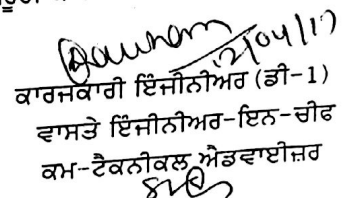 12/04/17
ਕਾਰਜਕਾਰੀ ਇੰਜੀਨੀਅਰ (ਡੀ-1)
ਵਾਸਤੇ ਇੰਜੀਨੀਅਰ-ਇਨ-ਚੀਫ
ਕਮ-ਟੈਕਨੀਕਲ ਐਡਵਾਈਜ਼ਰ